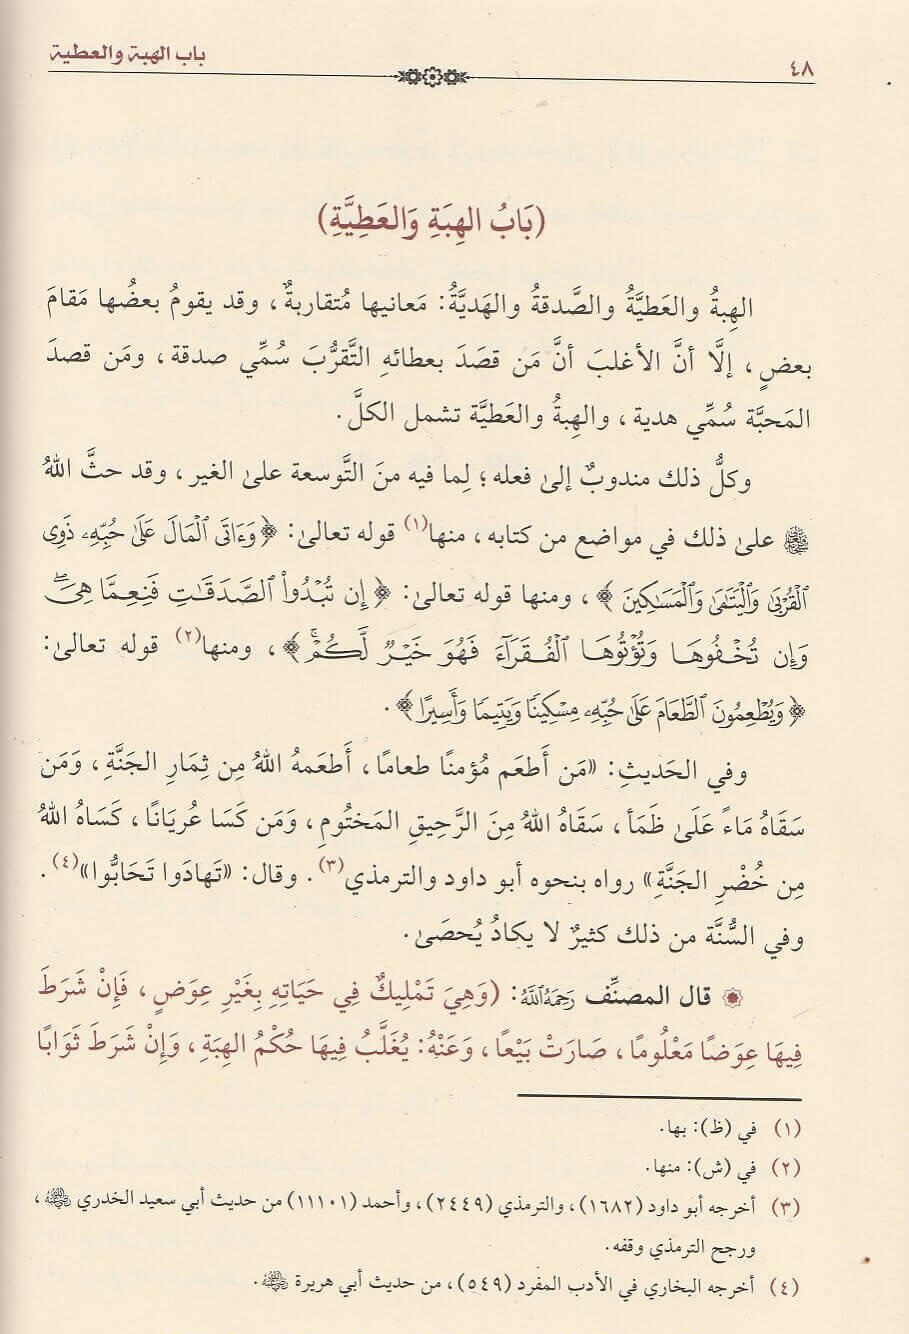 باب الهبة والعطية
٤٨
(بَابُ الهِبَةِ وَالعَطِيَّةِ)
الهِبةُ والعَطيَّةُ والصَّدقةُ والهَديَّةُ: مَعانيها مُتقاربةٌ، وقد يقومُ بعضُها مَقامَ
بعضٍ، إلَّا أنَّ الأغلبَ أنَّ مَن قصَدَ بعطائهِ التَّقرُّبَ سُمِّي صدقة، ومَن قصدَ
المَحبَّة سُمِّي هدية، والهِبةُ والعَطيَّة تشمل الكلَّ.
وكلُّ ذلك مندوبٌ إلىٰ فعله؛ لِما فيه منَ التَّوسعة على الغير، وقد حثَّ اللهُ
ﷻ علىٰ ذلك في مواضع من كتابه، منها(١) قوله تعالىٰ: ﴿وَءَاتَى ٱلْمَالَ عَلَىٰ حُبِّهِۦ ذَوِى
ٱلْقُرْبَىٰ وَٱلْيَتَٰمَىٰ وَٱلْمَسَٰكِينَ﴾، ومنها قوله تعالىٰ: ﴿إِن تُبْدُوا۟ ٱلصَّدَقَٰتِ فَنِعِمَّا هِىَۖ
وَإِن تُخْفُوهَا وَتُؤْتُوهَا ٱلْفُقَرَآءَ فَهُوَ خَيْرٌ لَّكُمْۚ﴾، ومنها(٢) قوله تعالىٰ:
﴿وَيُطْعِمُونَ ٱلطَّعَامَ عَلَىٰ حُبِّهِۦ مِسْكِينًا وَيَتِيمًا وَأَسِيرًا﴾.
وفي الحَديثِ: «مَن أَطعَم مُؤمنًا طعامًا، أَطعَمهُ اللهُ مِن ثِمَارِ الجَنَّةِ، وَمَن
سَقَاهُ مَاءً عَلَىٰ ظَمَأ، سَقَاهُ اللهُ مِنَ الرَّحِيقِ المَختُومِ، وَمَن كَسَا عُريَانًا، كَسَاهُ اللهُ
مِن خُضْرِ الجَنَّةِ» رواه بنحوه أبو داود والترمذي(٣). وقال: «تَهادَوا تَحَابُّوا»(٤).
وفي السُّنَّة من ذلك كثيرٌ لا يكادُ يُحصَىٰ.
قال المصنِّف رَحِمَهُ اللَّهُ: (وَهِيَ تَمْلِيكٌ فِي حَيَاتِهِ بِغَيْرِ عِوَضٍ، فَإِنْ شَرَطَ
فِيهَا عِوَضًا مَعْلُومًا، صَارَتْ بَيْعًا، وَعَنْهُ: يُغَلَّبُ فِيهَا حُكْمُ الهِبَةِ، وَإِنْ شَرَطَ ثَوَابًا
(١) في (ظ): بها.
(٢) في (ش): منها.
(٣) أخرجه أبو داود (١٦٨٢)، والترمذي (٢٤٤٩)، وأحمد (١١١٠١) من حديث أبي سعيد الخدري رضي الله عنه،
ورجح الترمذي وقفه.
(٤) أخرجه البخاري في الأدب المفرد (٥٤٩)، من حديث أبي هريرة رضي الله عنه.